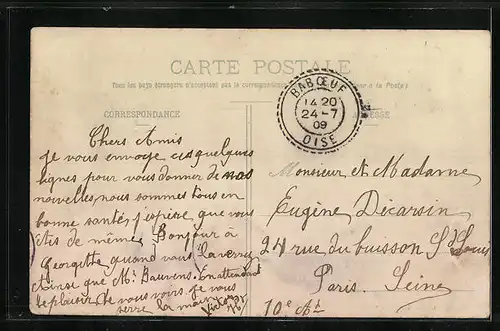 CARTE POSTALE
Tous les pays étrangers n'acceptent pas la correspondance
à la Poste)
CORRESPONDANCE
BABŒUF
14 20
24-7
09
OISE
Chers Amis
Je vous envoye ces quelques
lignes pour vous donner de nos
nouvelles, nous sommes tous en
bonne santé, j'espère que vous
êtes de même. Bonjour à
Georgette quand vous
Ainse que Mr
le plaisir de vous voir je vous
serre la main
Victor
Monsieur et Madame
Eugène Décarsin
24 rue du buisson St Louis
Paris. Seine
10e Ar